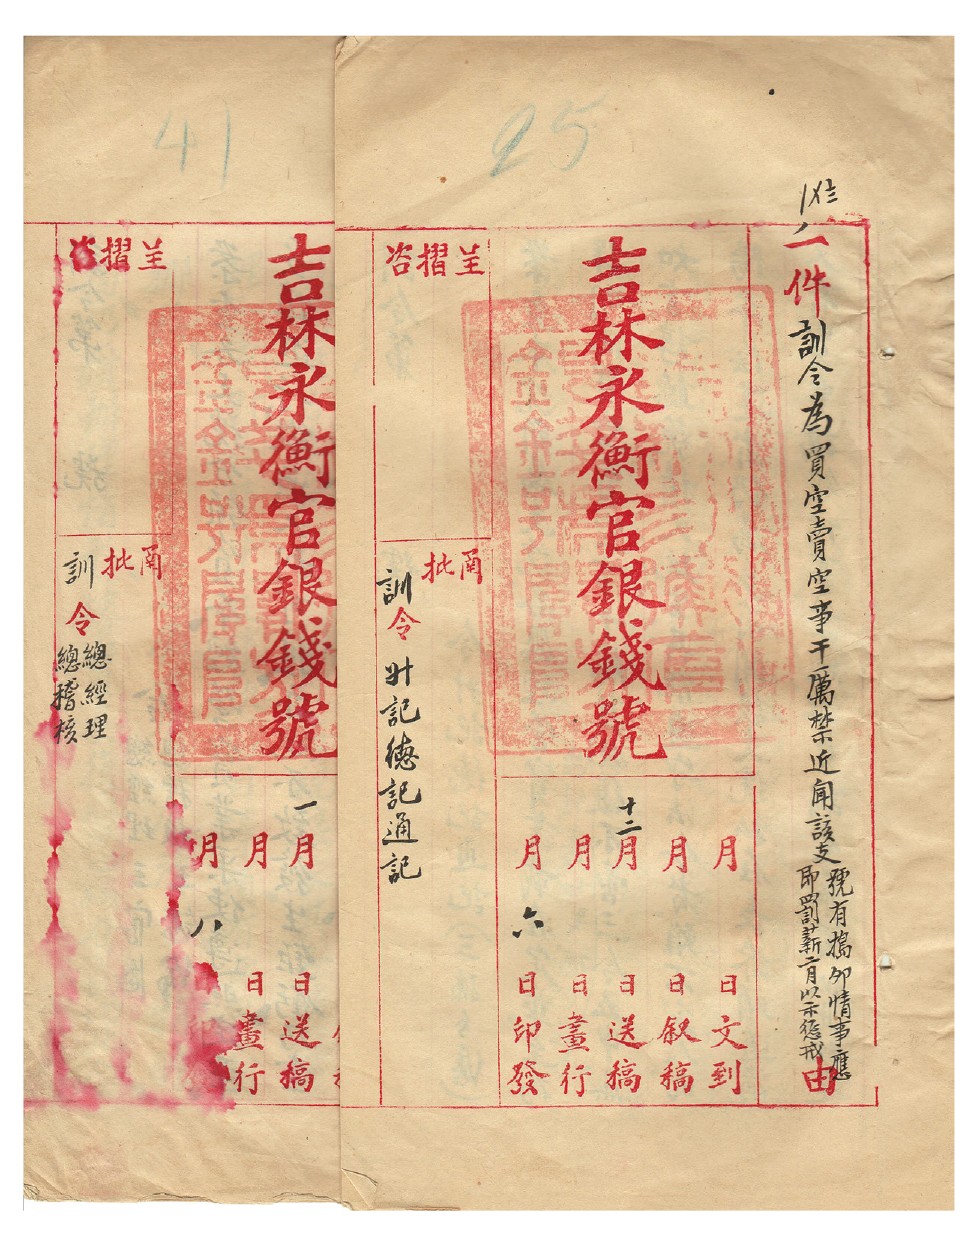 25
一件訓令為買空賣空事干厲禁近聞該支號有搗卯情事應
即罰薪一月以示懲戒由
月日文到
月日叙稿
十二月日送稿
月日畫行
月六日印發
吉林永衡官銀錢號
呈摺咨
批
訓令
廾記德記通記
41
吉林永衡官銀錢號
一月日送稿
月日畫行
月八日
呈摺咨
批
訓令
總經理
總稽核